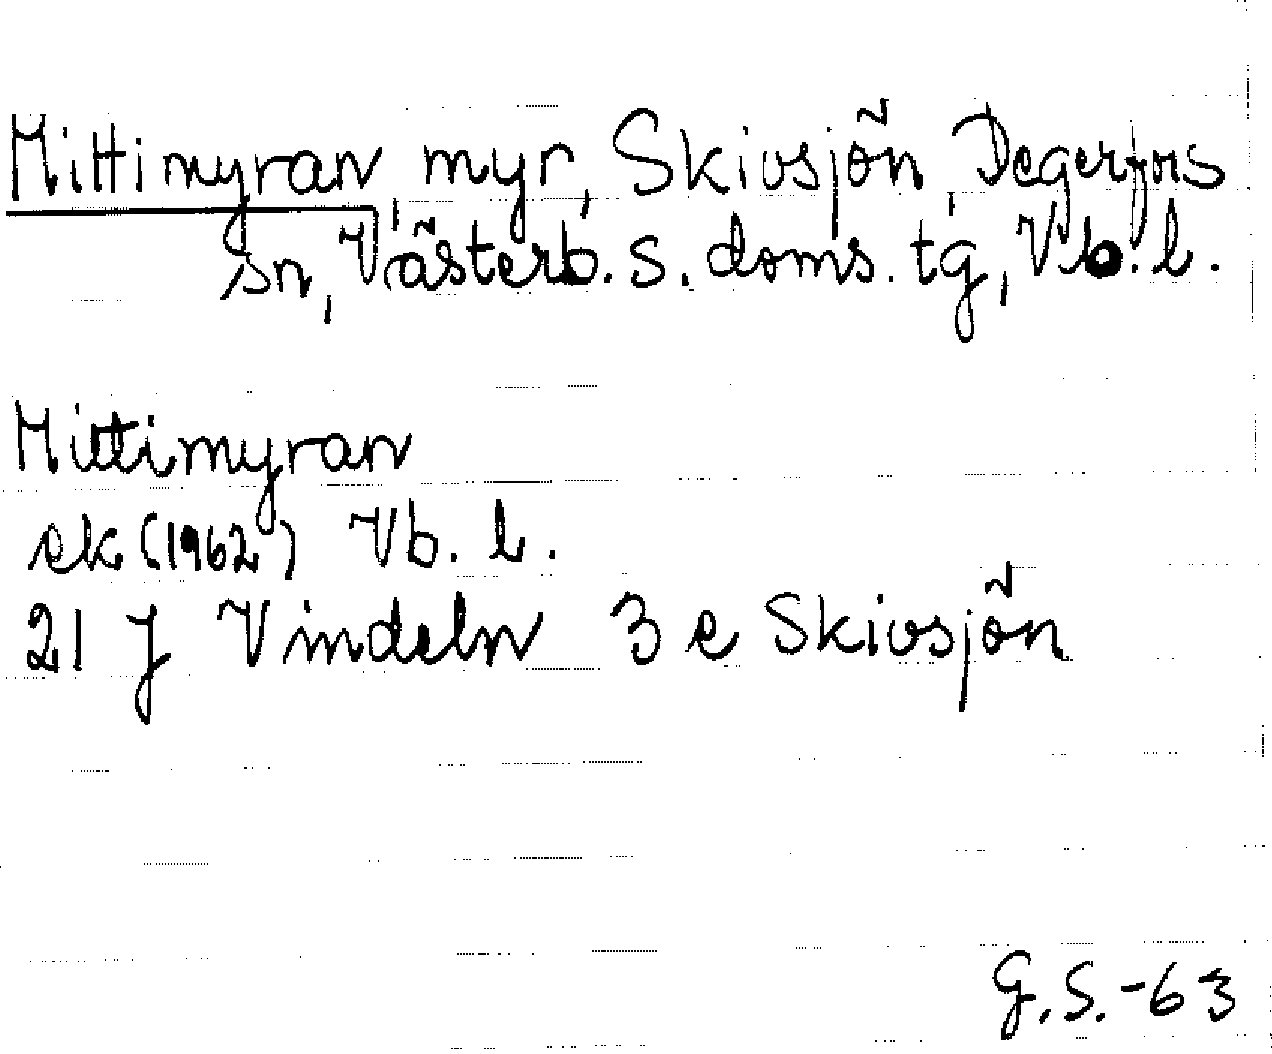 Mittimyran, myr, Skivsjön, Degerfors
sn, Västerb. s. doms. tg, Vb. l.
Mittimyran
ek (1962) Vb. l.
21 J Vindeln 3 e Skivsjön
G.S.-63